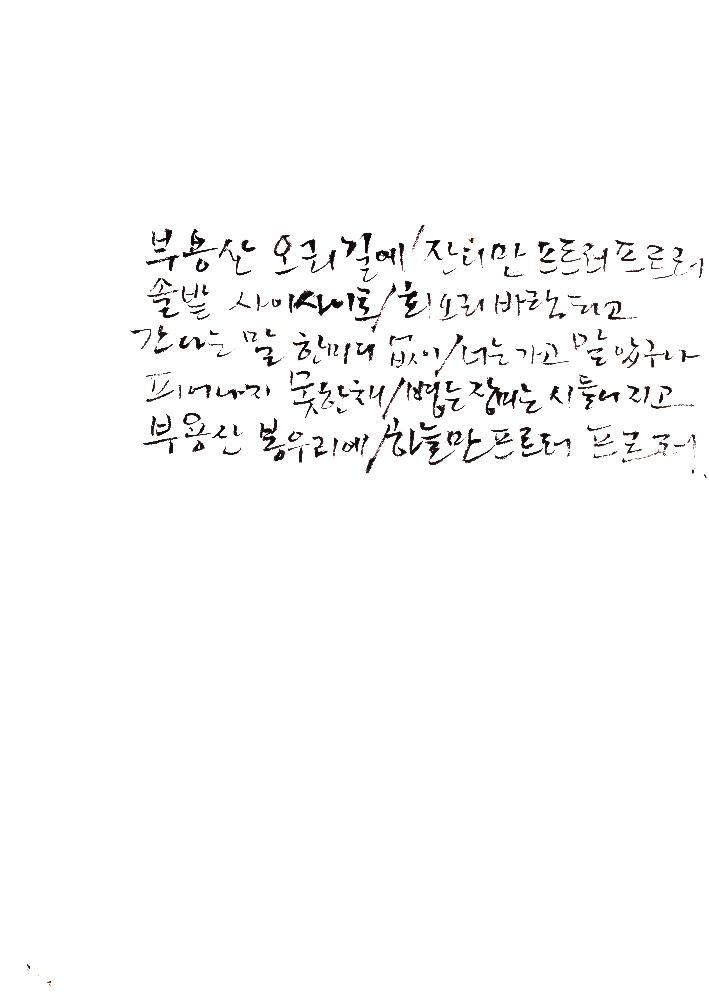 부용산 오리길에/잔디만 프르러 프르러
솔밭 사이사이로/회오리 바람 타고
간다는 말 한마디 없이/너는 가고 말았구나
피어나지 못한 채/병든 장미는 시들어지고
부용산 봉우리에/하늘만 프르러 프르러.